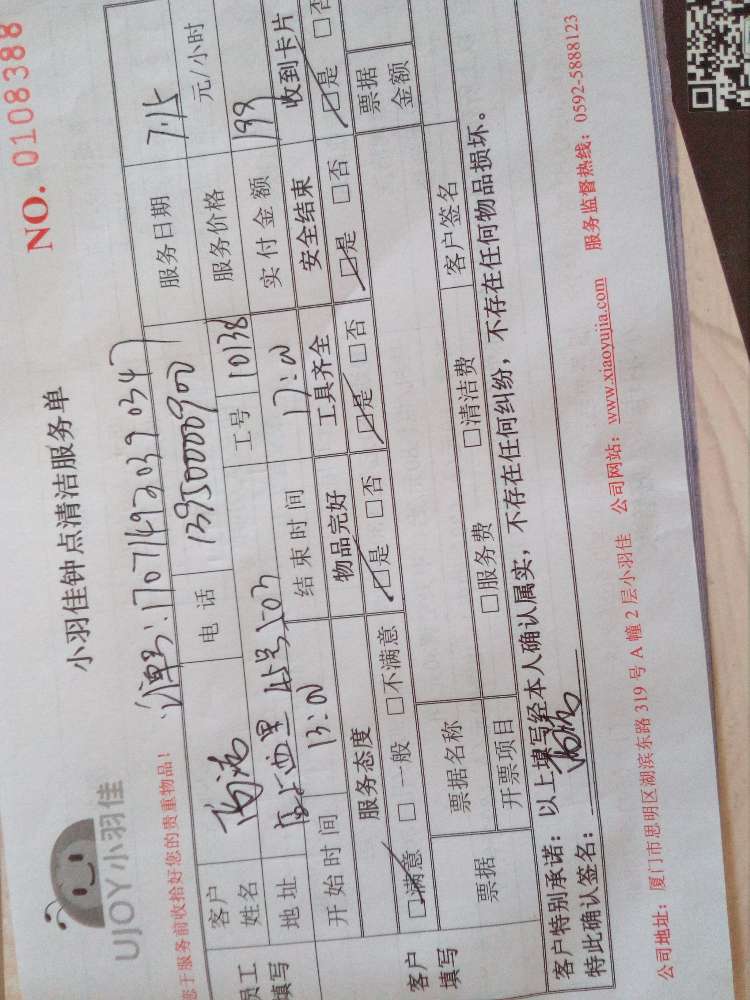 NO. 0108388
小羽佳钟点清洁服务单
UJOY小羽佳
您于服务前收拾好您的贵重物品！
单号：170714920390347
员工填写
客户姓名
电 话 13950000900
服务日期 7.15
地址
45号503
工号 10138
服务价格 元/小时
开始时间 13:00
结束时间 17:00
实付金额 199
客户填写
服务态度 物品完好 工具齐全 安全结束 收到卡片
□满意 □ 一般 □不满意 □是 □否 □是 □否 □是 □否 □是 □否
票据 票据名称 票据金额
开票项目 □服务费 □清洁费 客户签名
客户特别承诺：以上填写经本人确认属实，不存在任何纠纷，不存在任何物品损坏。
特此确认签名：
公司地址：厦门市思明区湖滨东路 319 号 A 幢 2 层小羽佳 公司网站：www.xiaoyujia.com 服务监督热线：0592-5888123